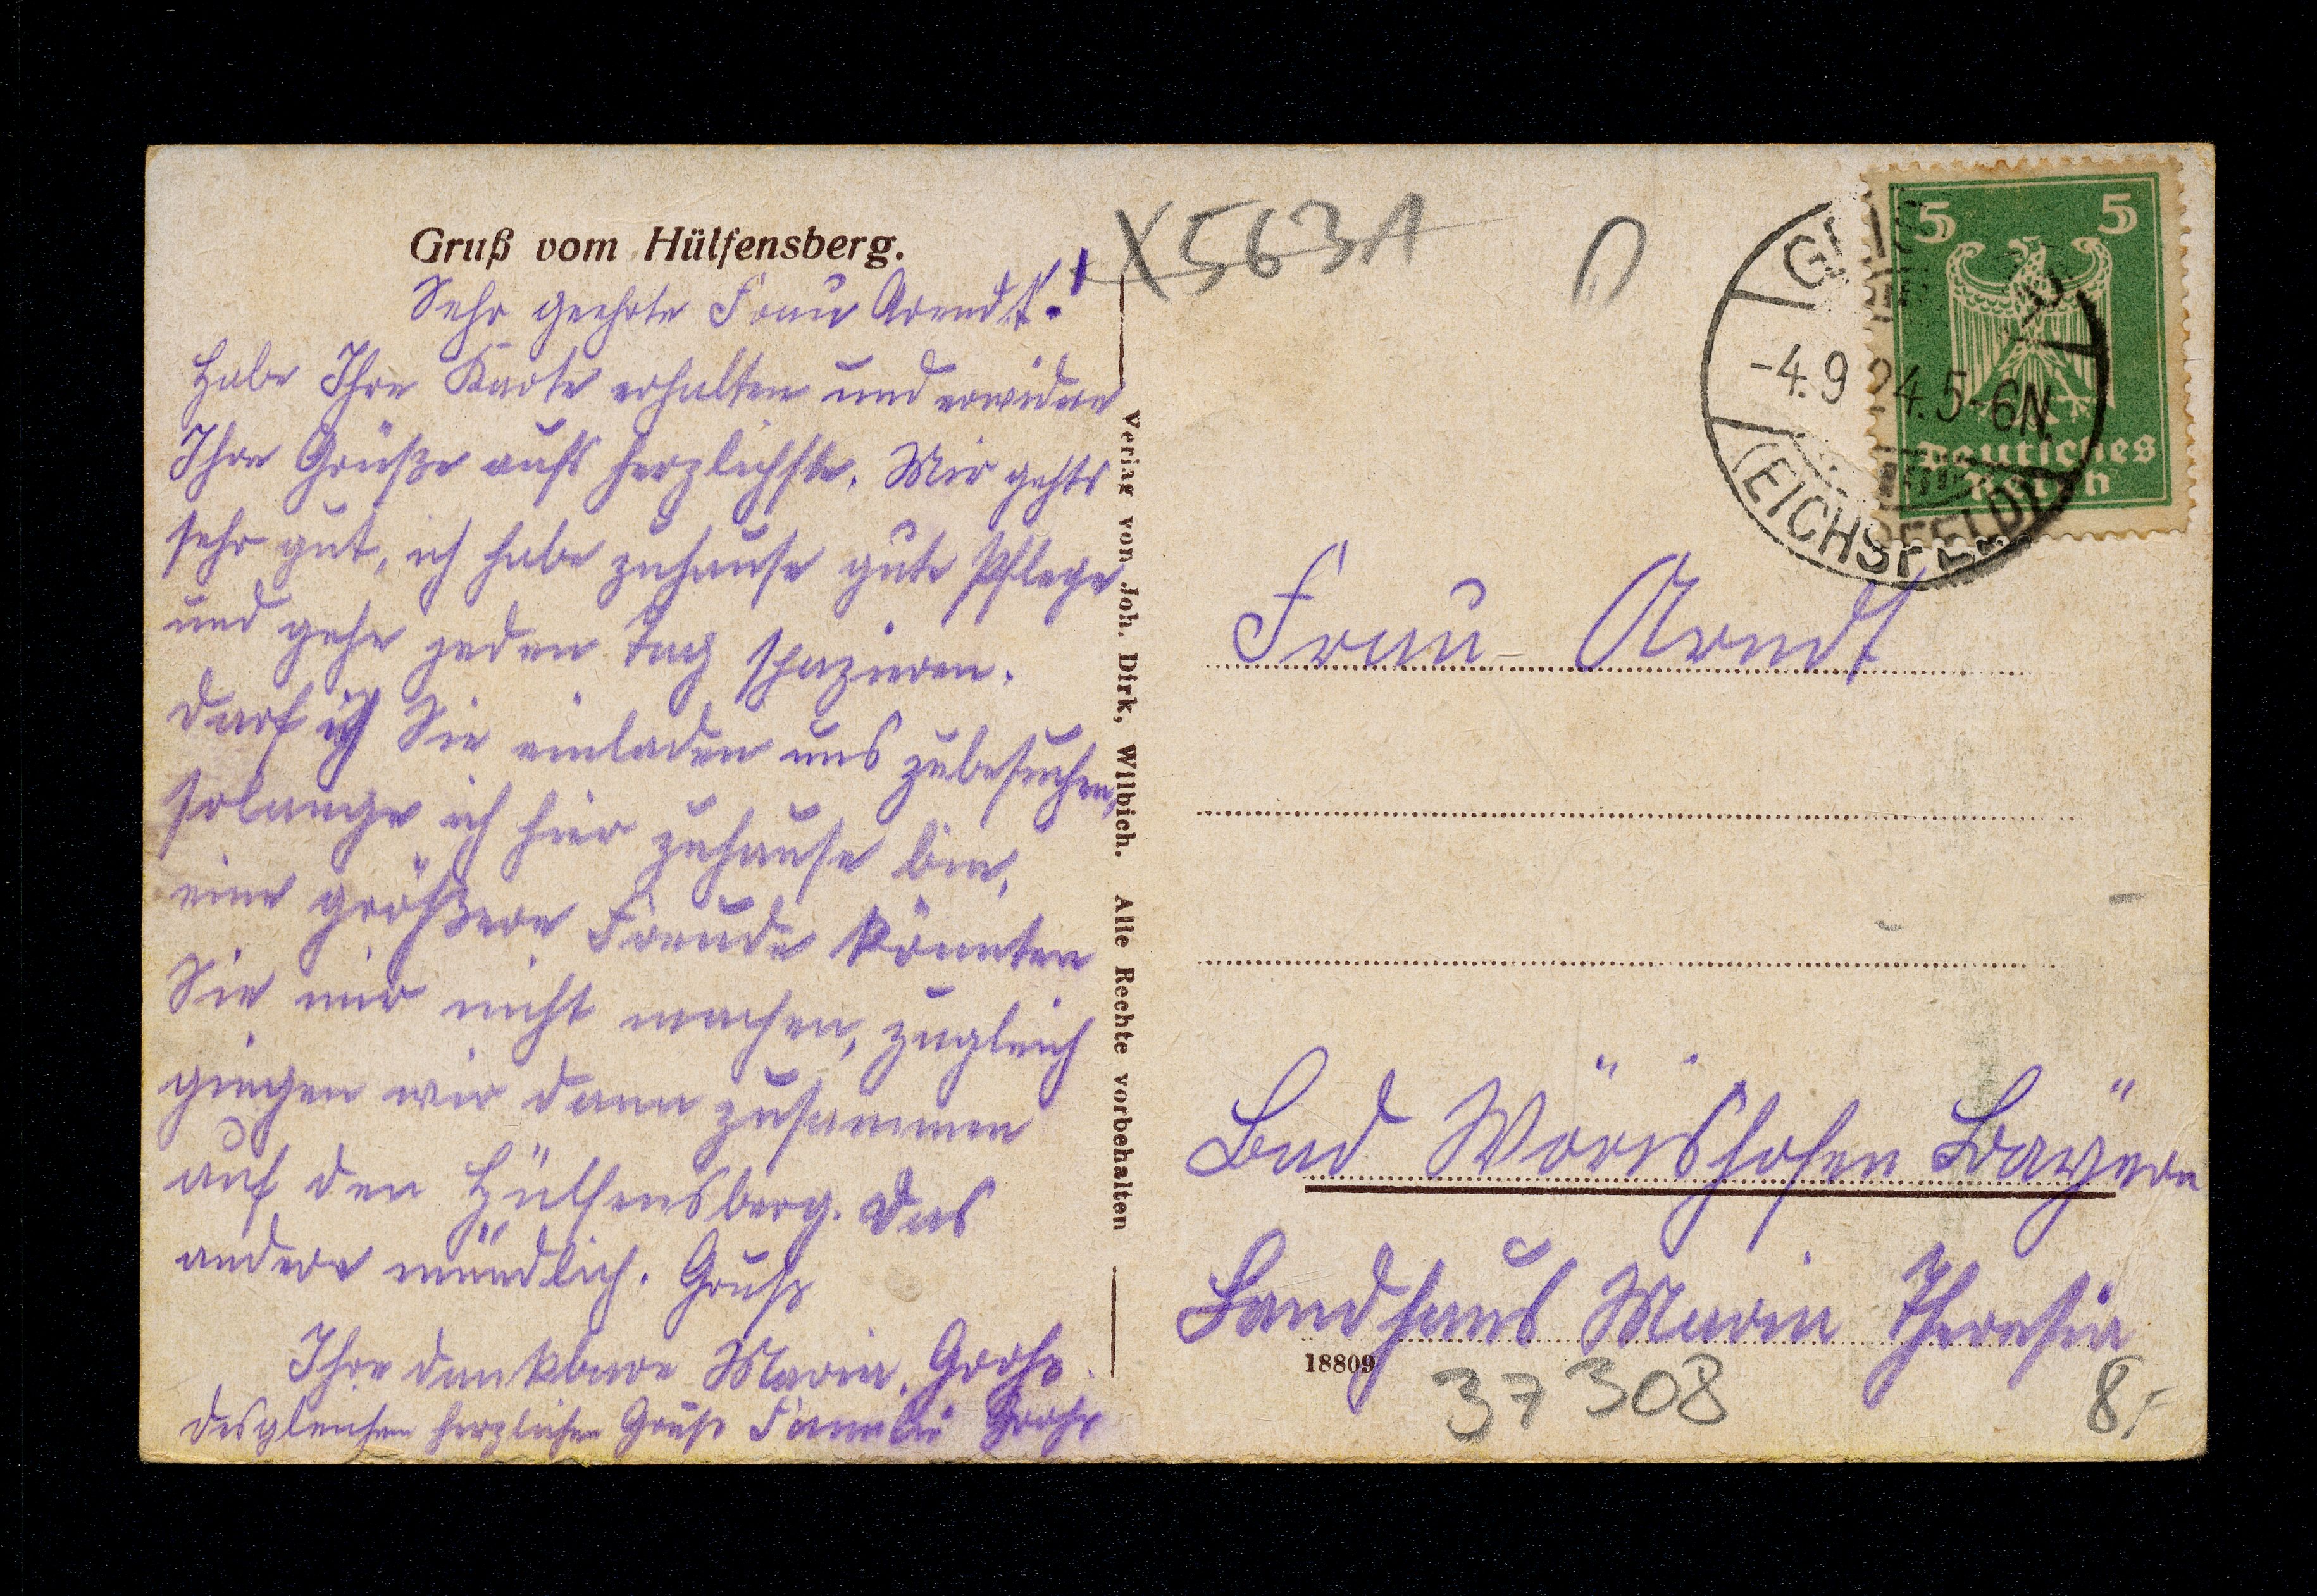 Gruß vom Hülfensberg.
Sehr geehrte Frau Arendt!
Habe Ihre Karte erhalten und erwidere
Ihre Grüße aufs herzlichste. Mir gehts
sehr gut, ich habe zuhause gute Pflege
und gehe jeden Tag spazieren.
Darf ich Sie einladen uns zubesuchen,
solange ich hier zuhause bin,
eine größere Freude könnten
Sie mir nicht machen, zugleich
gingen wir dann zusammen
auf den Hülfensberg. Das
andere mündlich. Gruß
Ihre dankbare Maria Grohs
desgleichen herzlichen Gruß Familie Grohs
Verlag von Joh. Dirk, Wilbich. Alle Rechte vorbehalten
X563A
5 5
Deutsches
Reich
-4.9 24.5-6N.
(EICHSFELD)
Frau Arndt
Bad Wörishofen Bayern
Landhaus Maria Theresia
18809
37308
8,-